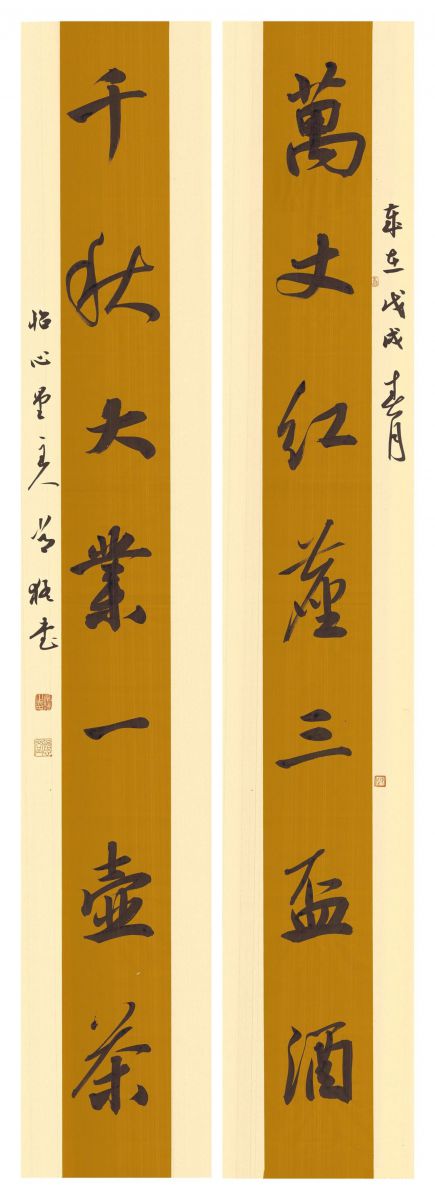 歲在戊戌春月
萬丈紅塵三盃酒
千秋大業一壺茶
怡心堂主人書